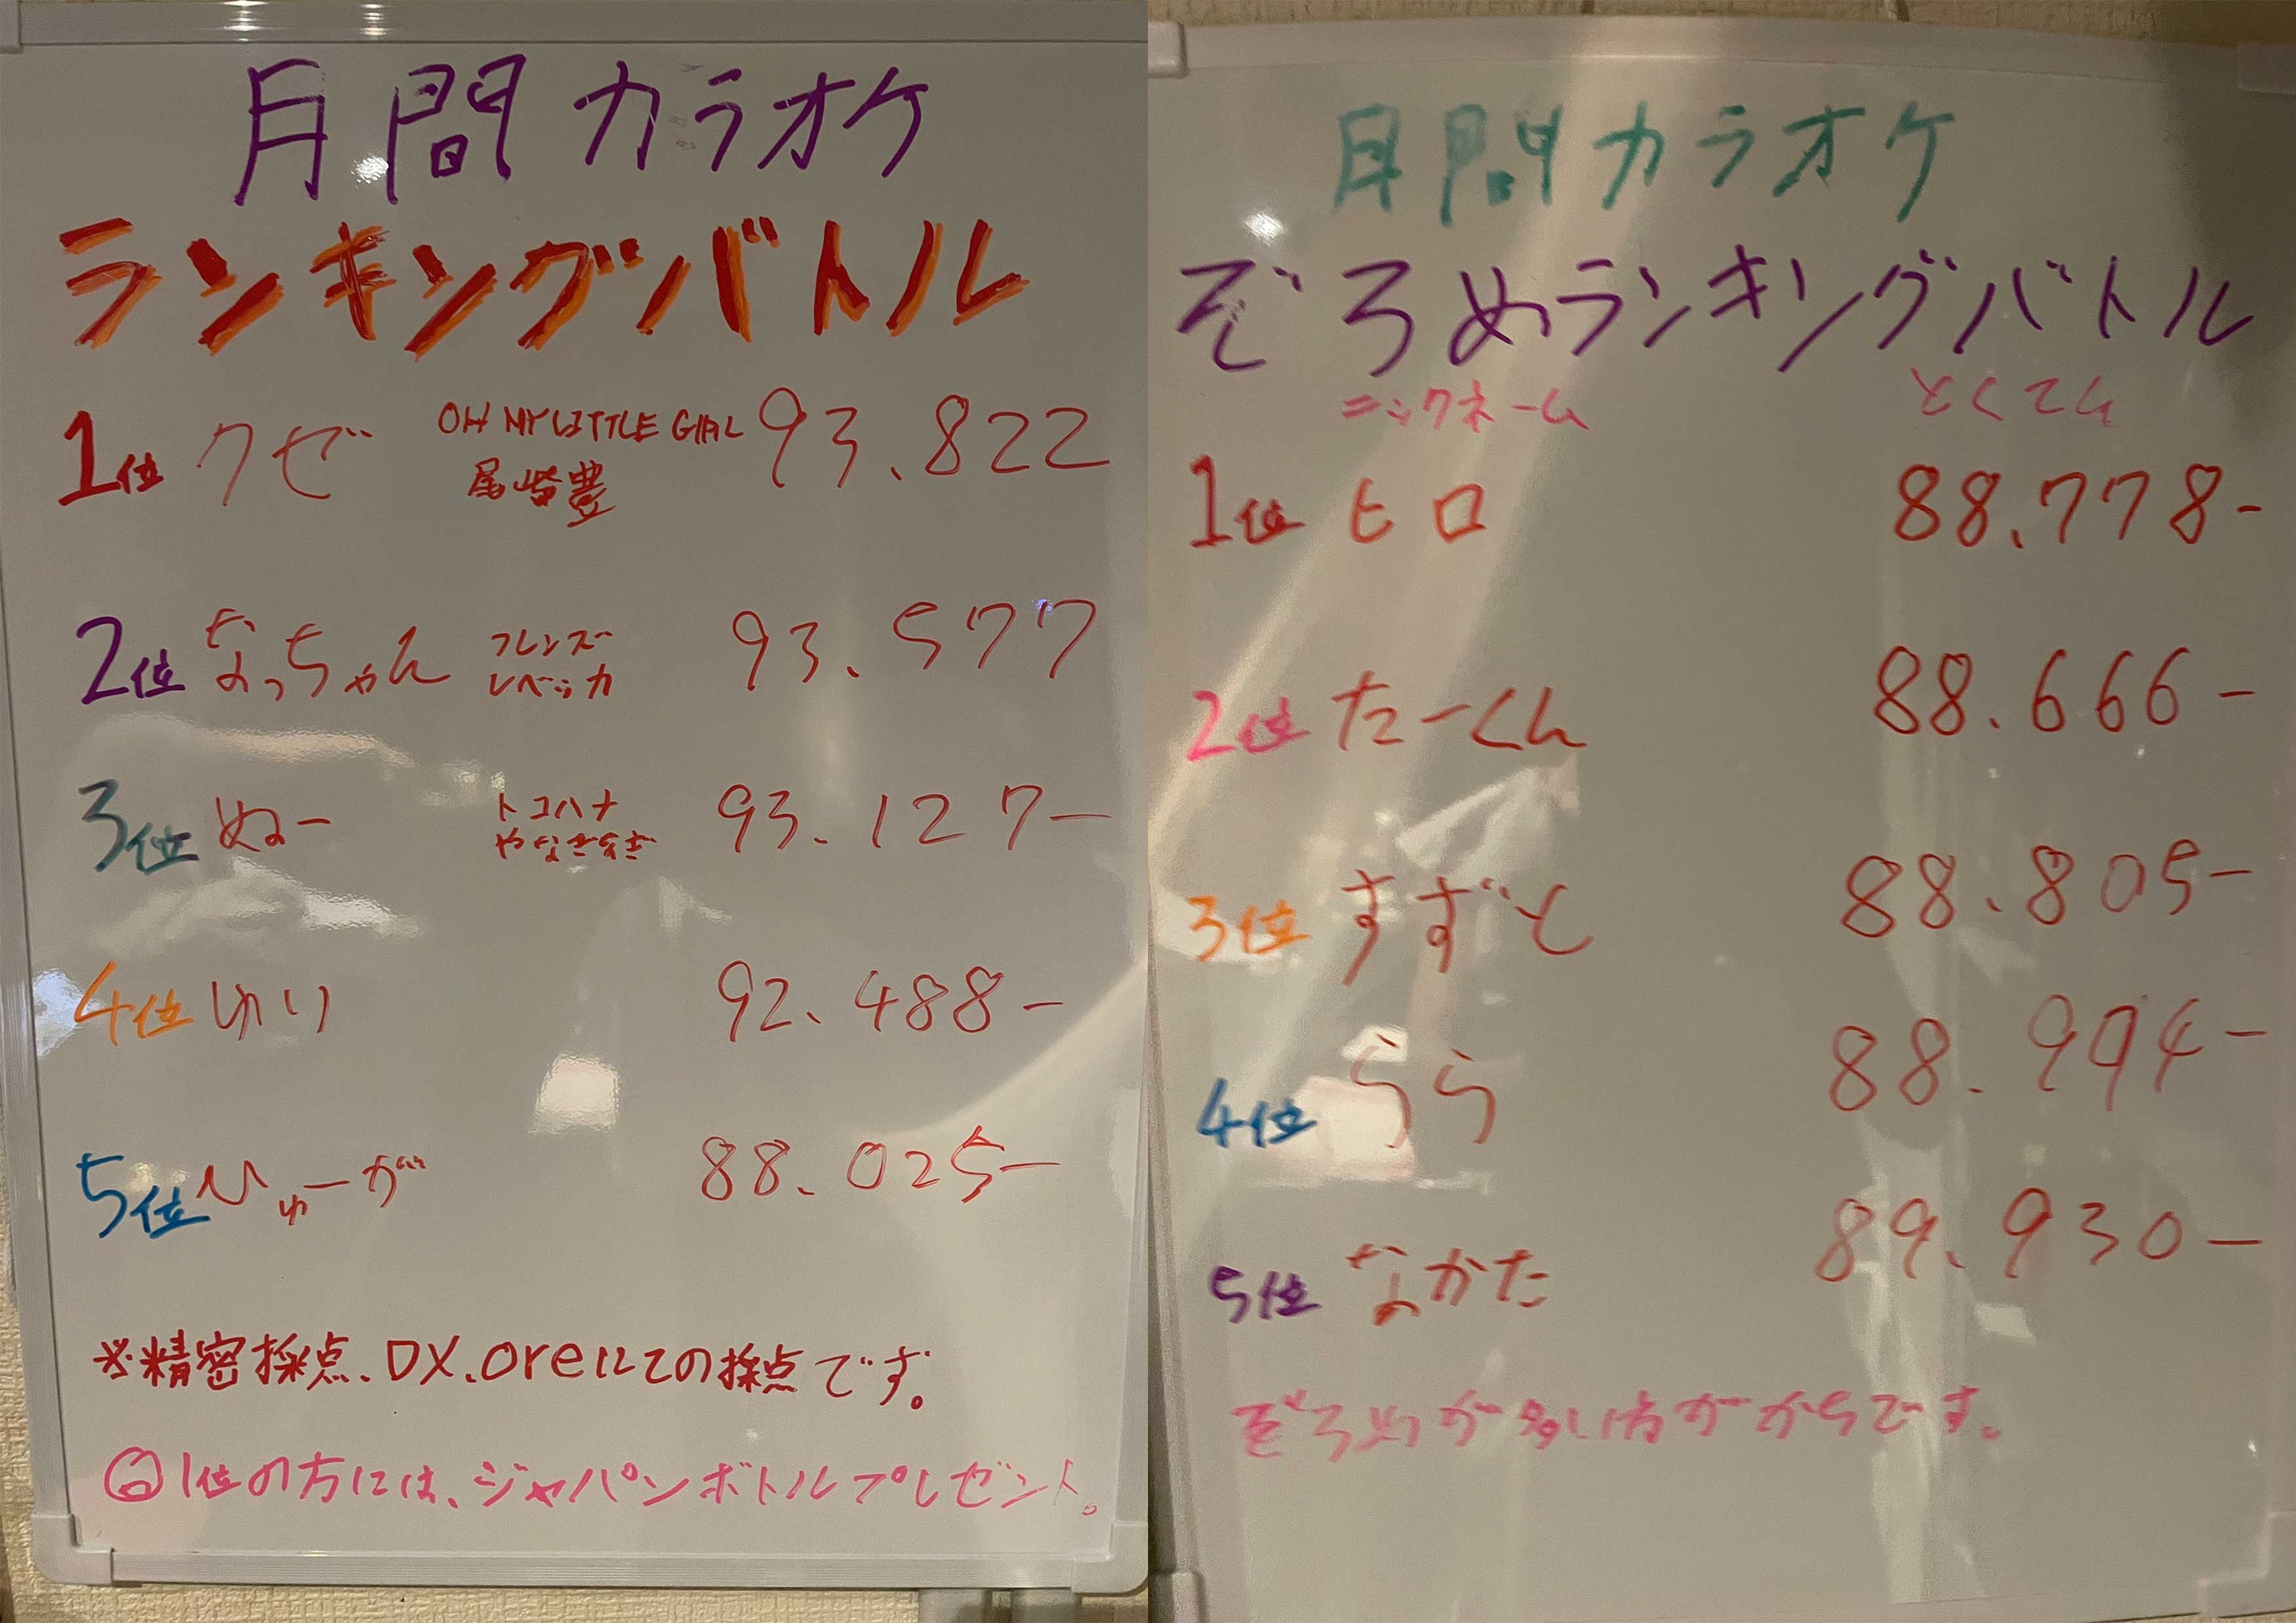 月間カラオケ
ランキングバトル
1位 クゼ OH MY LITTLE GIRL 93.822
尾崎豊
2位 なっちゃん フレンズ 93.577
レベッカ
3位 ぬー トコハナ 93.127-
やなぎなぎ
4位 ゆい 92.488-
5位 ひゅーが 88.025-
※精密採点.DX.oreにての採点です。
◎1位の方には、ジャパンボトルプレゼント。
月間カラオケ
ぞろめランキングバトル
ニックネーム とくてん
1位 ヒロ 88.778-
2位 たーくん 88.666-
3位 すずと 88.805-
4位 らら 88.994-
5位 なかた 89.930-
ぞろめが多い方がかちです。